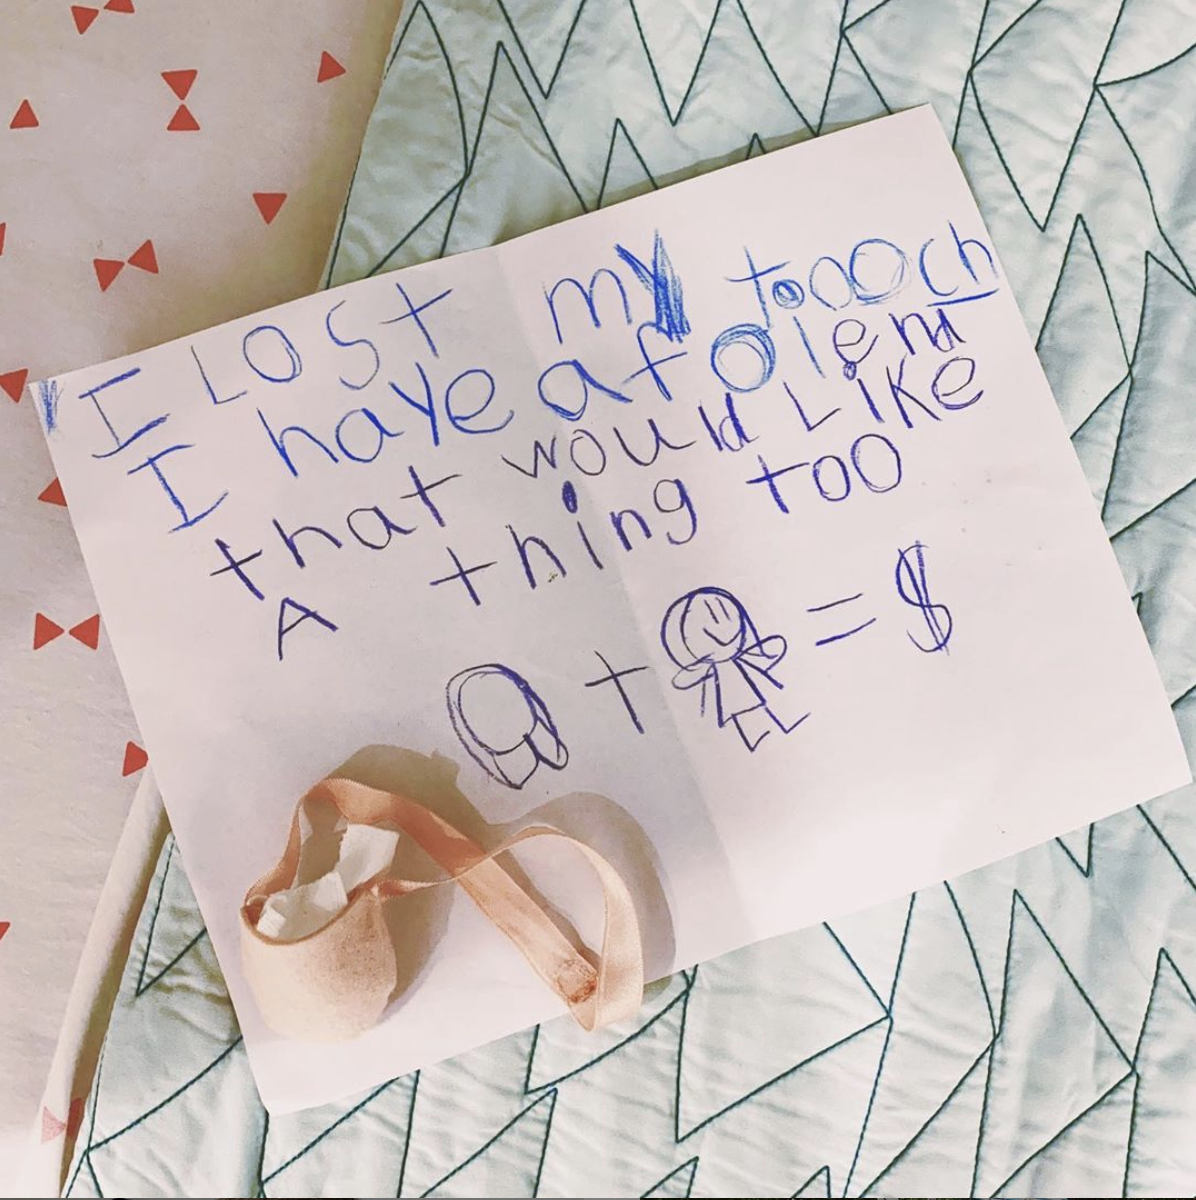 I LOST my toooch
I haye a folend
that would Like
A thing too
+ = $